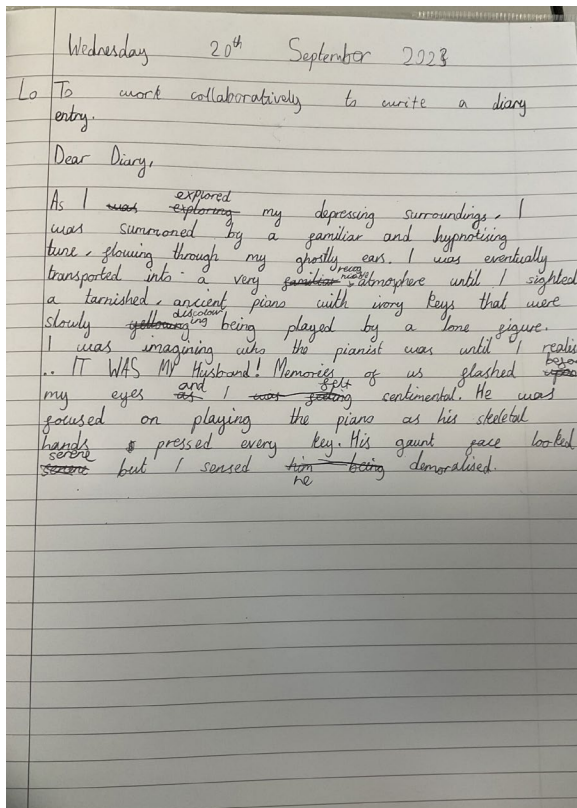 Wednesday 20th September 2023
Lo To work collaboratively to write a diary
entry.
Dear Diary,
As I was exploring explored my depressing surroundings, I
was summoned by a familiar and hypnotising
tune, flowing through my ghostly ears. I was eventually
transported into a very familiar atmosphere until I sighted
a tarnished, ancient piano with ivory keys that were
slowly yellowing discolouring being played by a lone figure.
I was imagining who the pianist was until I realis
.. IT WAS MY Husband! Memories of us flashed upon before
my eyes as and I was feeling felt sentimental. He was
focused on playing the piano as his skeletal
hands pressed every key. His gaunt face looked
serene but I sensed him being he demoralised.